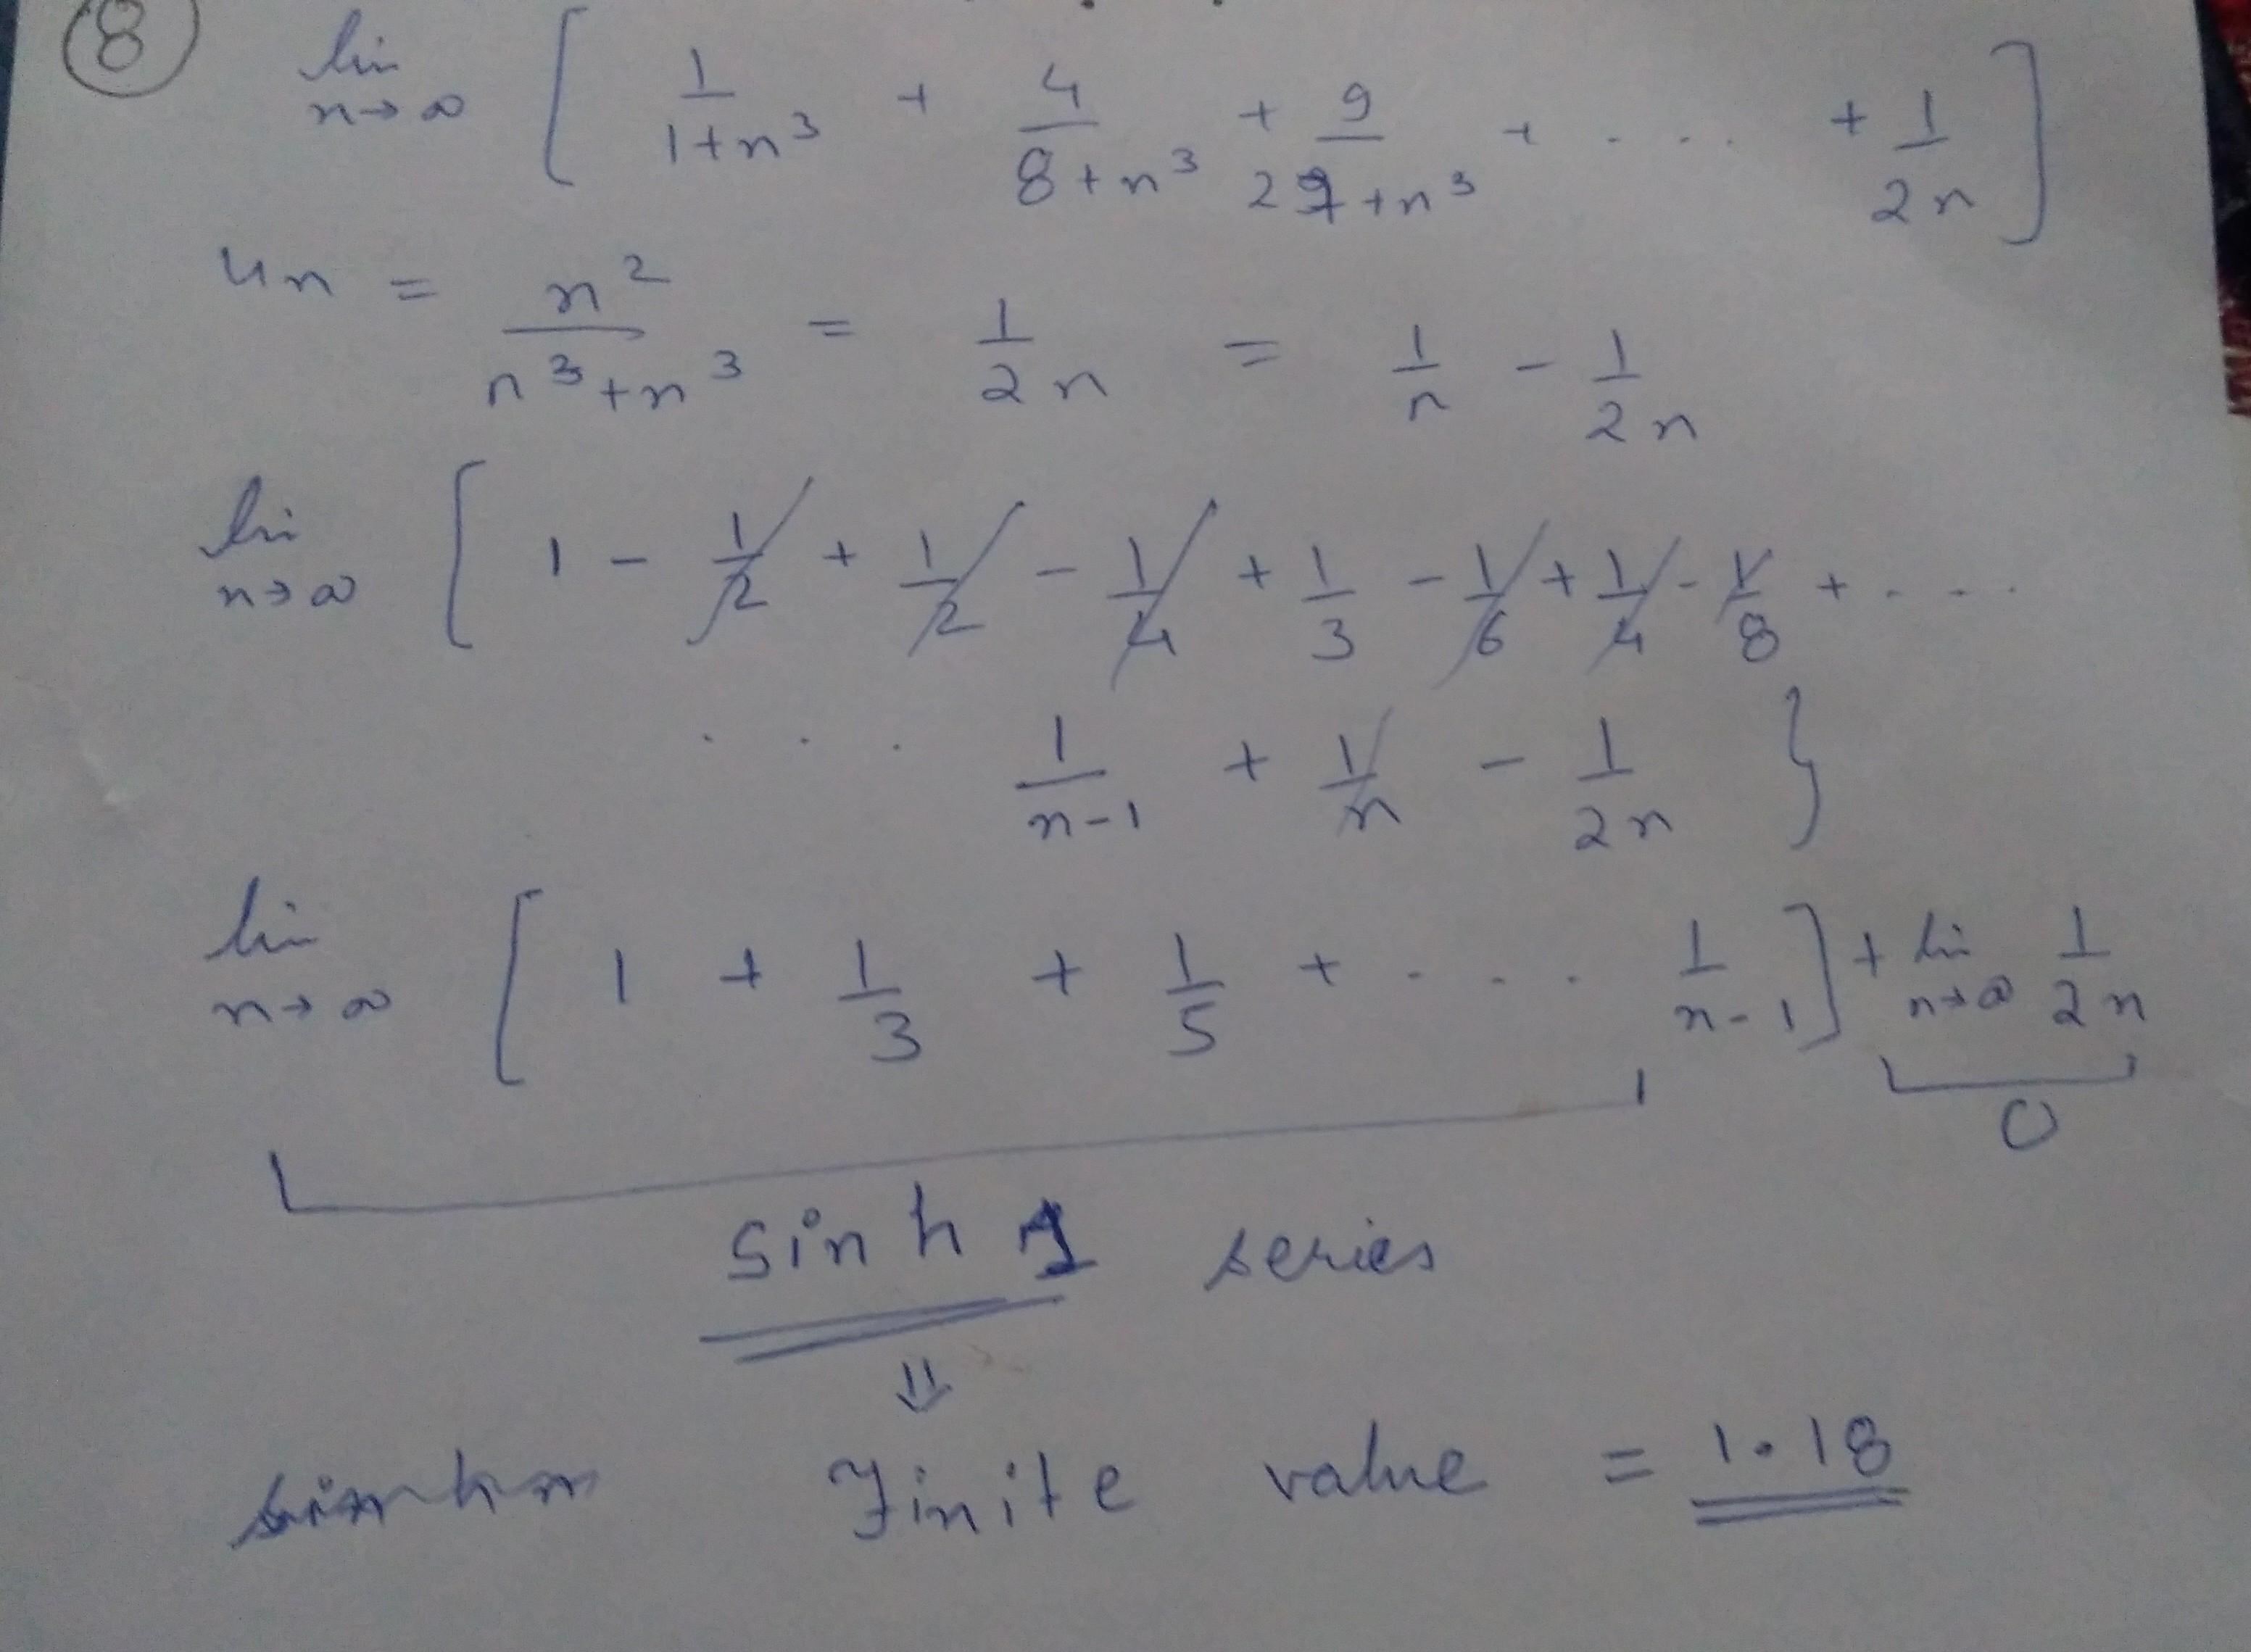 8 lim n→∞ [ 1/(1+n³) + 4/(8+n³) + 9/(27+n³) + . ... + 1/2n ]
un = n²/(n³+n³) = 1/2n = 1/n - 1/2n
lim n→∞ [ 1 - 1/2 + 1/2 - 1/4 + 1/3 - 1/6 + 1/4 - 1/8 + ....
... 1/(n-1) + 1/n - 1/2n }
lim n→∞ [ 1 + 1/3 + 1/5 + .... 1/(n-1) ] + lim n→∞ 1/2n
0
sin h 1 series
⇓
Finite value = 1.18